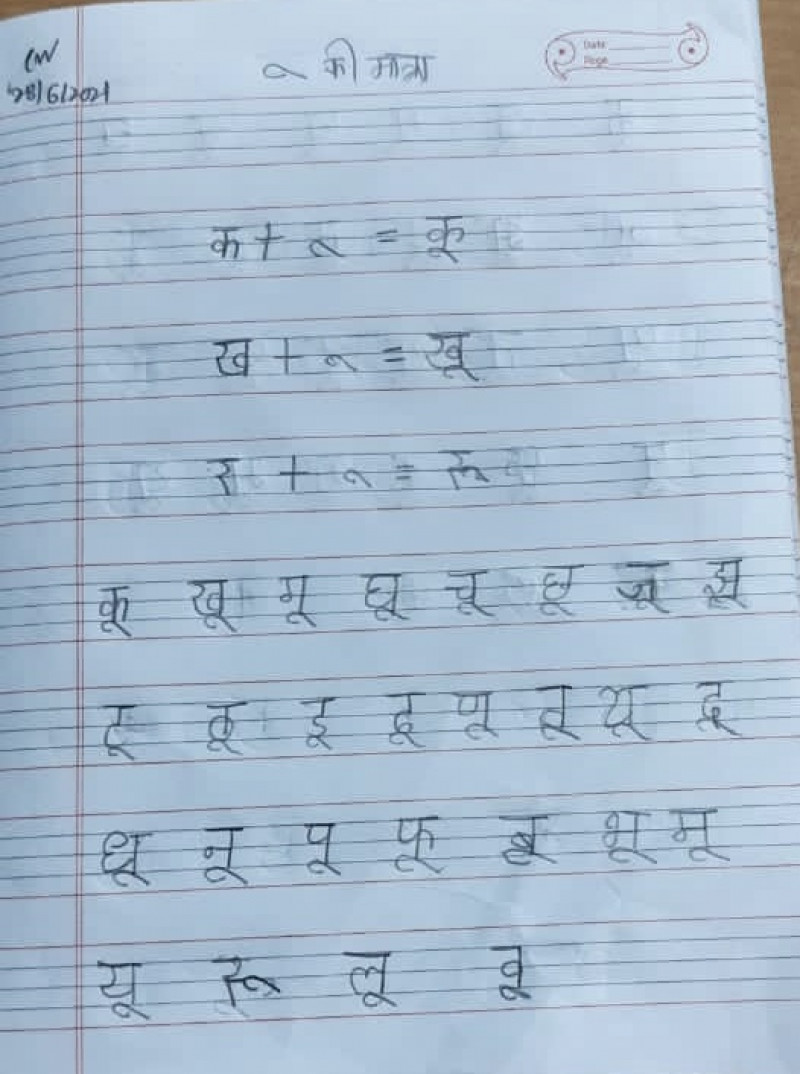 CW
28/6/2021
ू की मात्रा
Date
Page
क + ू = कू
ख + ू = खू
र + ू = रू
कू खू मू घू चू छू जू झू
टू ठू डू ढू णू तू थू दू
धू नू पू फू बू भू मू
यू रू लू वू